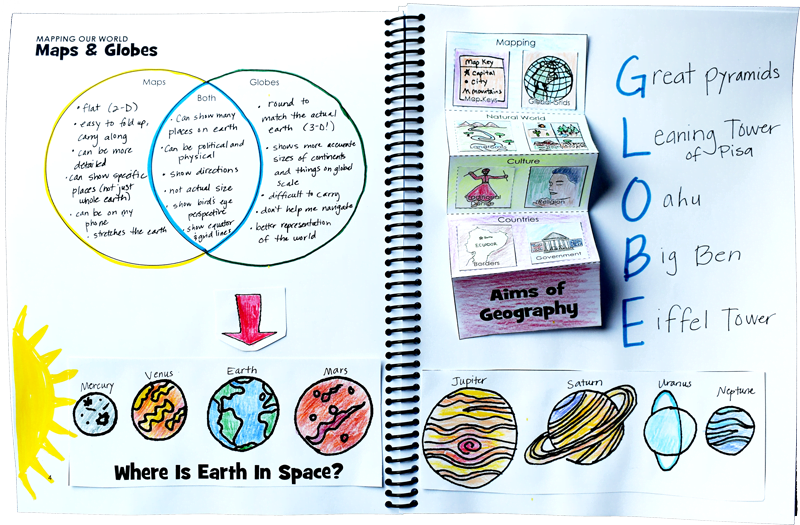 MAPPING OUR WORLD
Maps & Globes
Maps
Both
Globes
• flat (2-D)
• easy to fold up,
carry along
• can be more
detailed
• can show specific
places (not just
whole earth)
• can be on my
phone
• stretches the earth
• Can show many
places on earth
• Can be political and
physical
• show directions
• not actual size
• show bird's eye
perspective
• show equator
& grid lines
• round to
match the actual
earth (3-D!)
• shows more accurate
sizes of continents
and things on global
scale
• difficult to carry
• don't help me navigate
• better representation
of the world
Mercury
Venus
Earth
Mars
Where Is Earth In Space?
4
Mapping
Map Key
Capital
• City
mountains
Map Keys
Global Grids
Natural World
Culture
Religion
Countries
ECUADOR
Borders
Government
Aims of
Geography
Great pyramids
Leaning Tower
of Pisa
Oahu
Big Ben
Eiffel Tower
Jupiter
Saturn
Uranus
Neptune